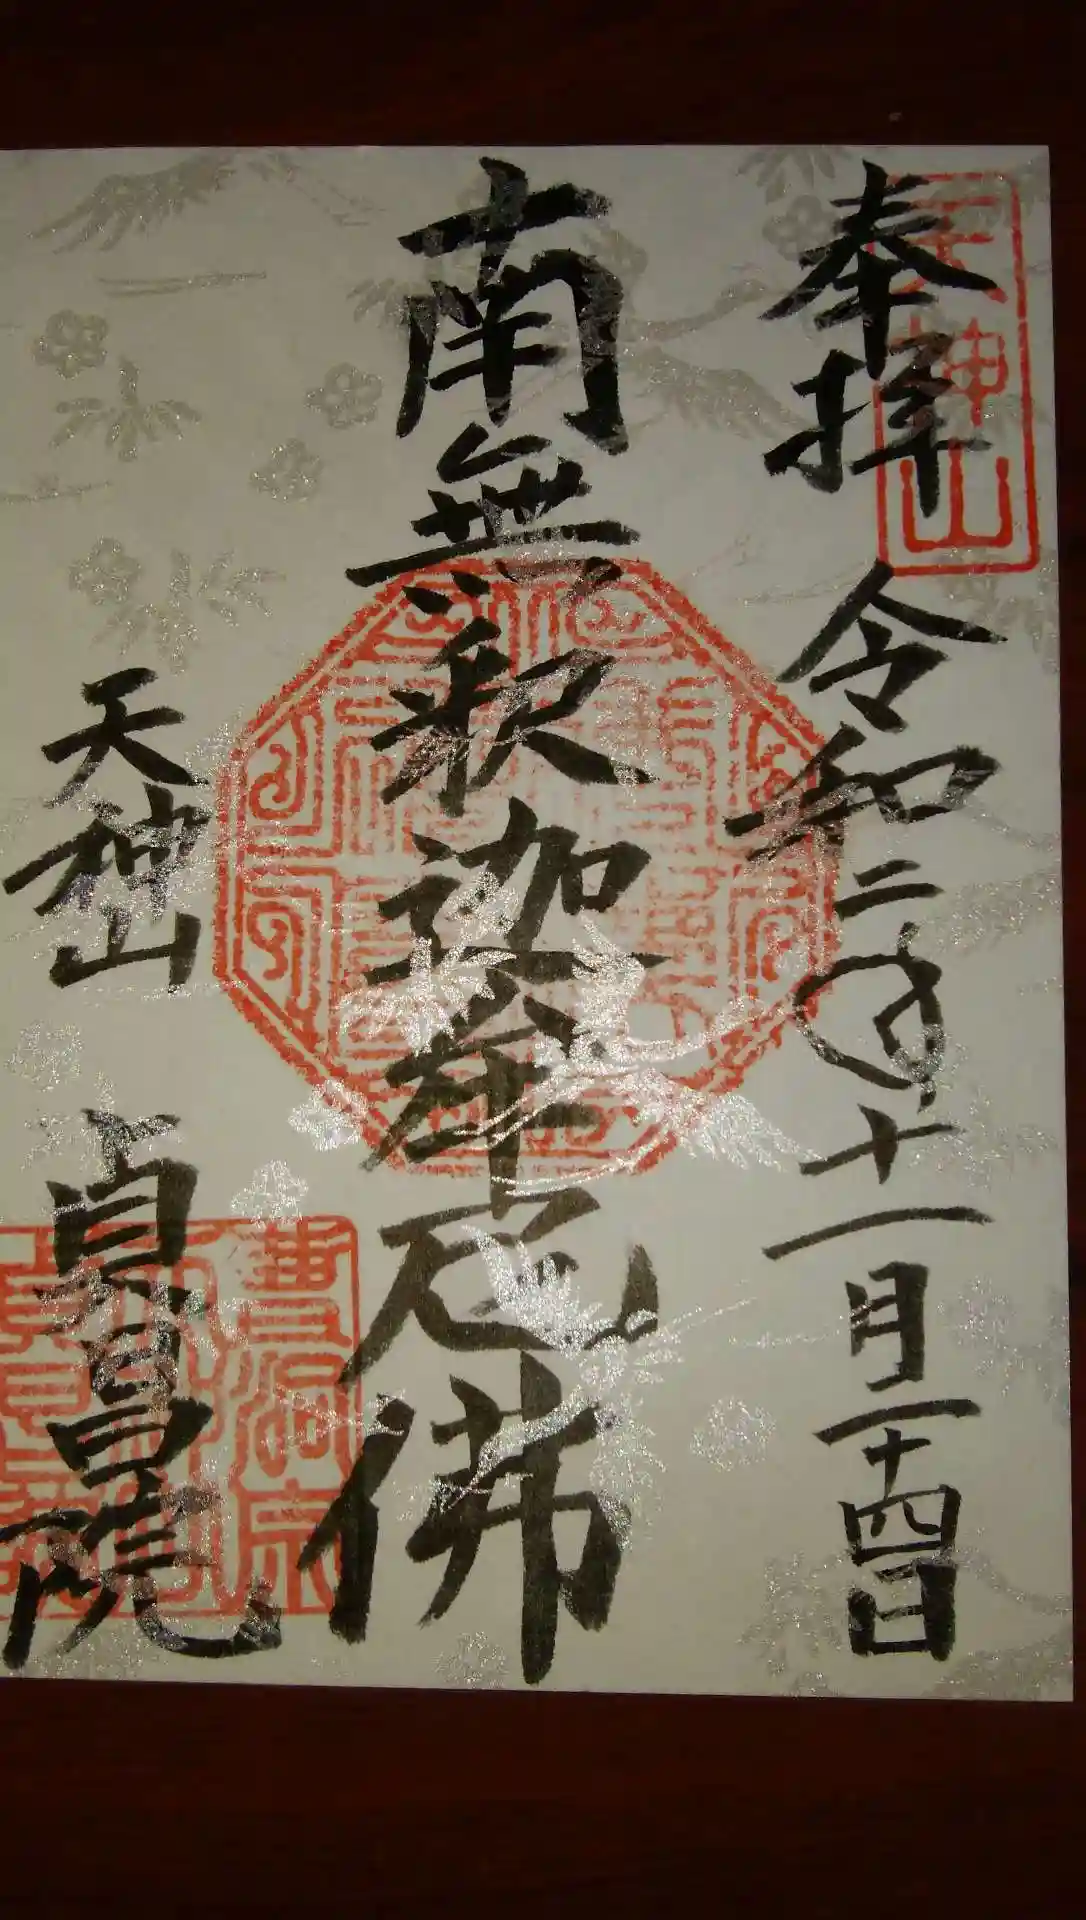 奉拝 令和二年十一月二十四日
天神山
南無釈迦牟尼佛
天神山 貞昌院
曹洞宗